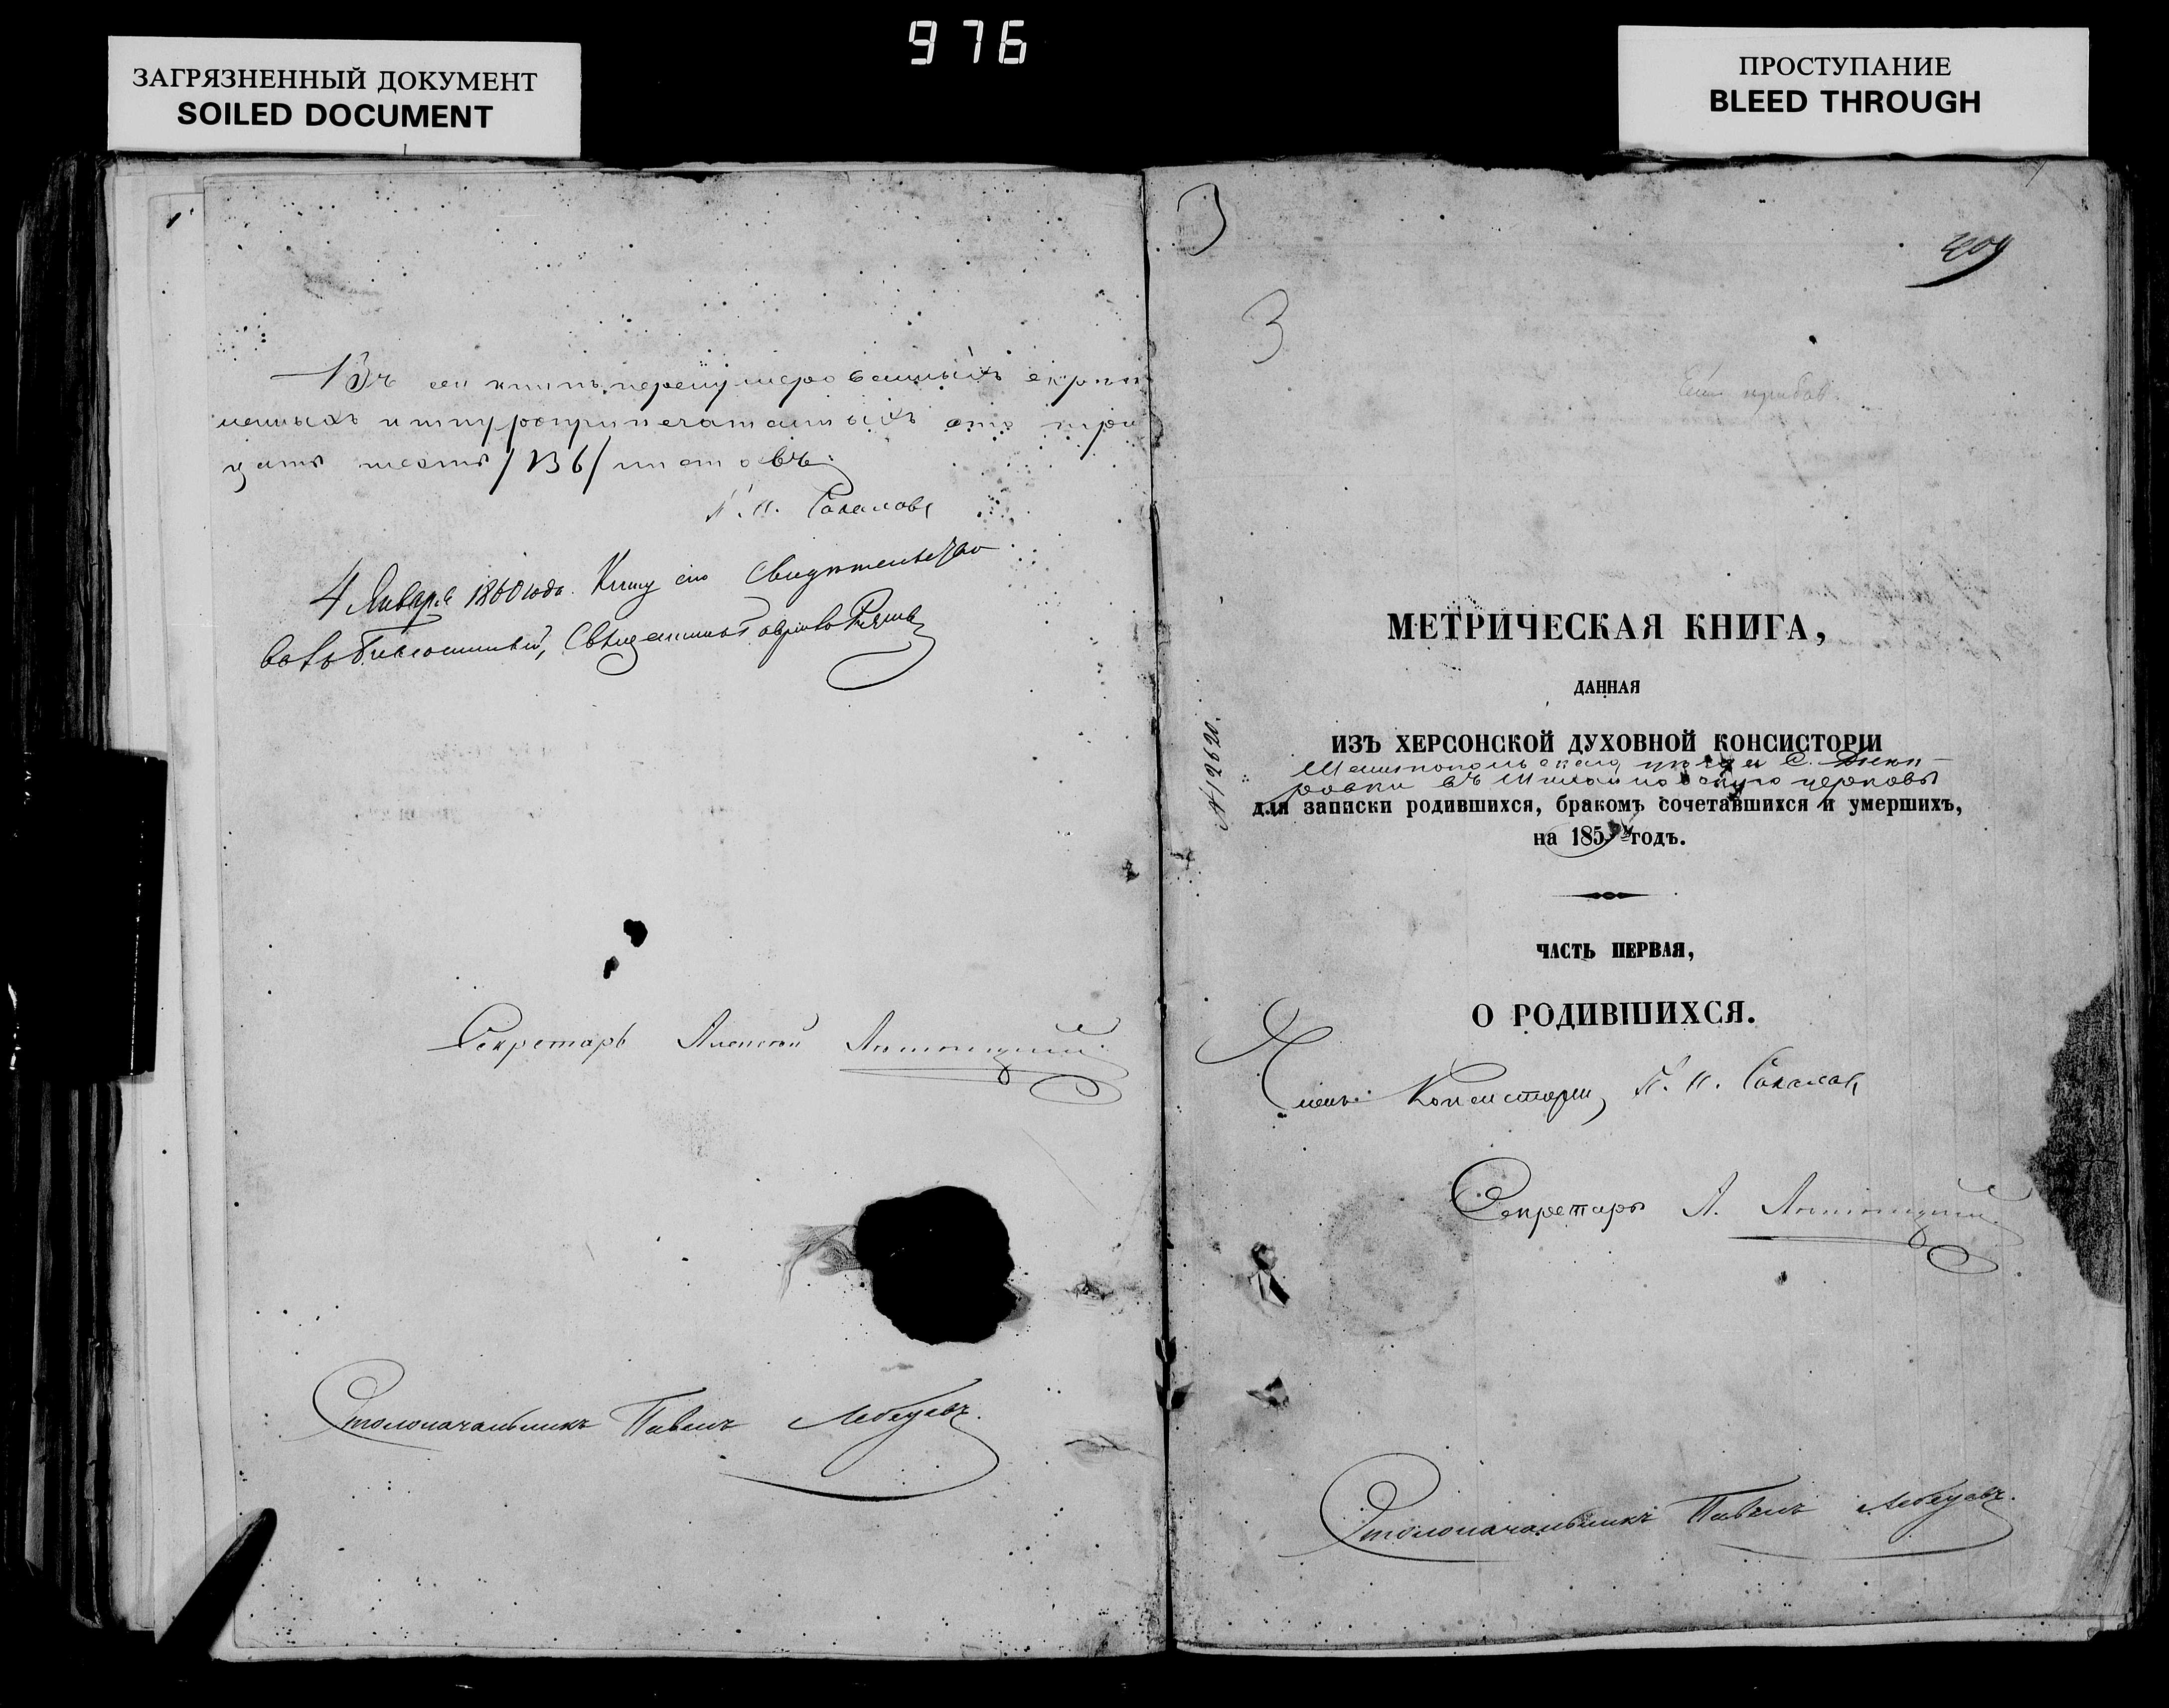 976
ЗАГРЯЗНЕННЫЙ ДОКУМЕНТ
SOILED DOCUMENT
ПРОСТУПАНИЕ
BLEED THROUGH
Въ сей книгѣ перенумерованныхъ скрѣп
ленныхъ и шнуроприпечатанныхъ сто три
дцать шесть /136/ листовъ
4 Января 1860 года. Книгу сію Свидѣтельство
валъ Благочинный, Священникъ
Секретарь Алексѣй
Столоначальникъ Павелъ Лебедевъ.
3
209
3
МЕТРИЧЕСКАЯ КНИГА,
ДАННАЯ
ИЗЪ ХЕРСОНСКОЙ ДУХОВНОЙ КОНСИСТОРІИ
уѣзда С.
въ церковь
для записки родившихся, бракомъ сочетавшихся и умершихъ,
на 1859 годъ.
№ 12620.
ЧАСТЬ ПЕРВАЯ,
О РОДИВШИХСЯ.
Членъ Консисторіи,
Секретарь А.
Столоначальникъ Павелъ Лебедевъ.